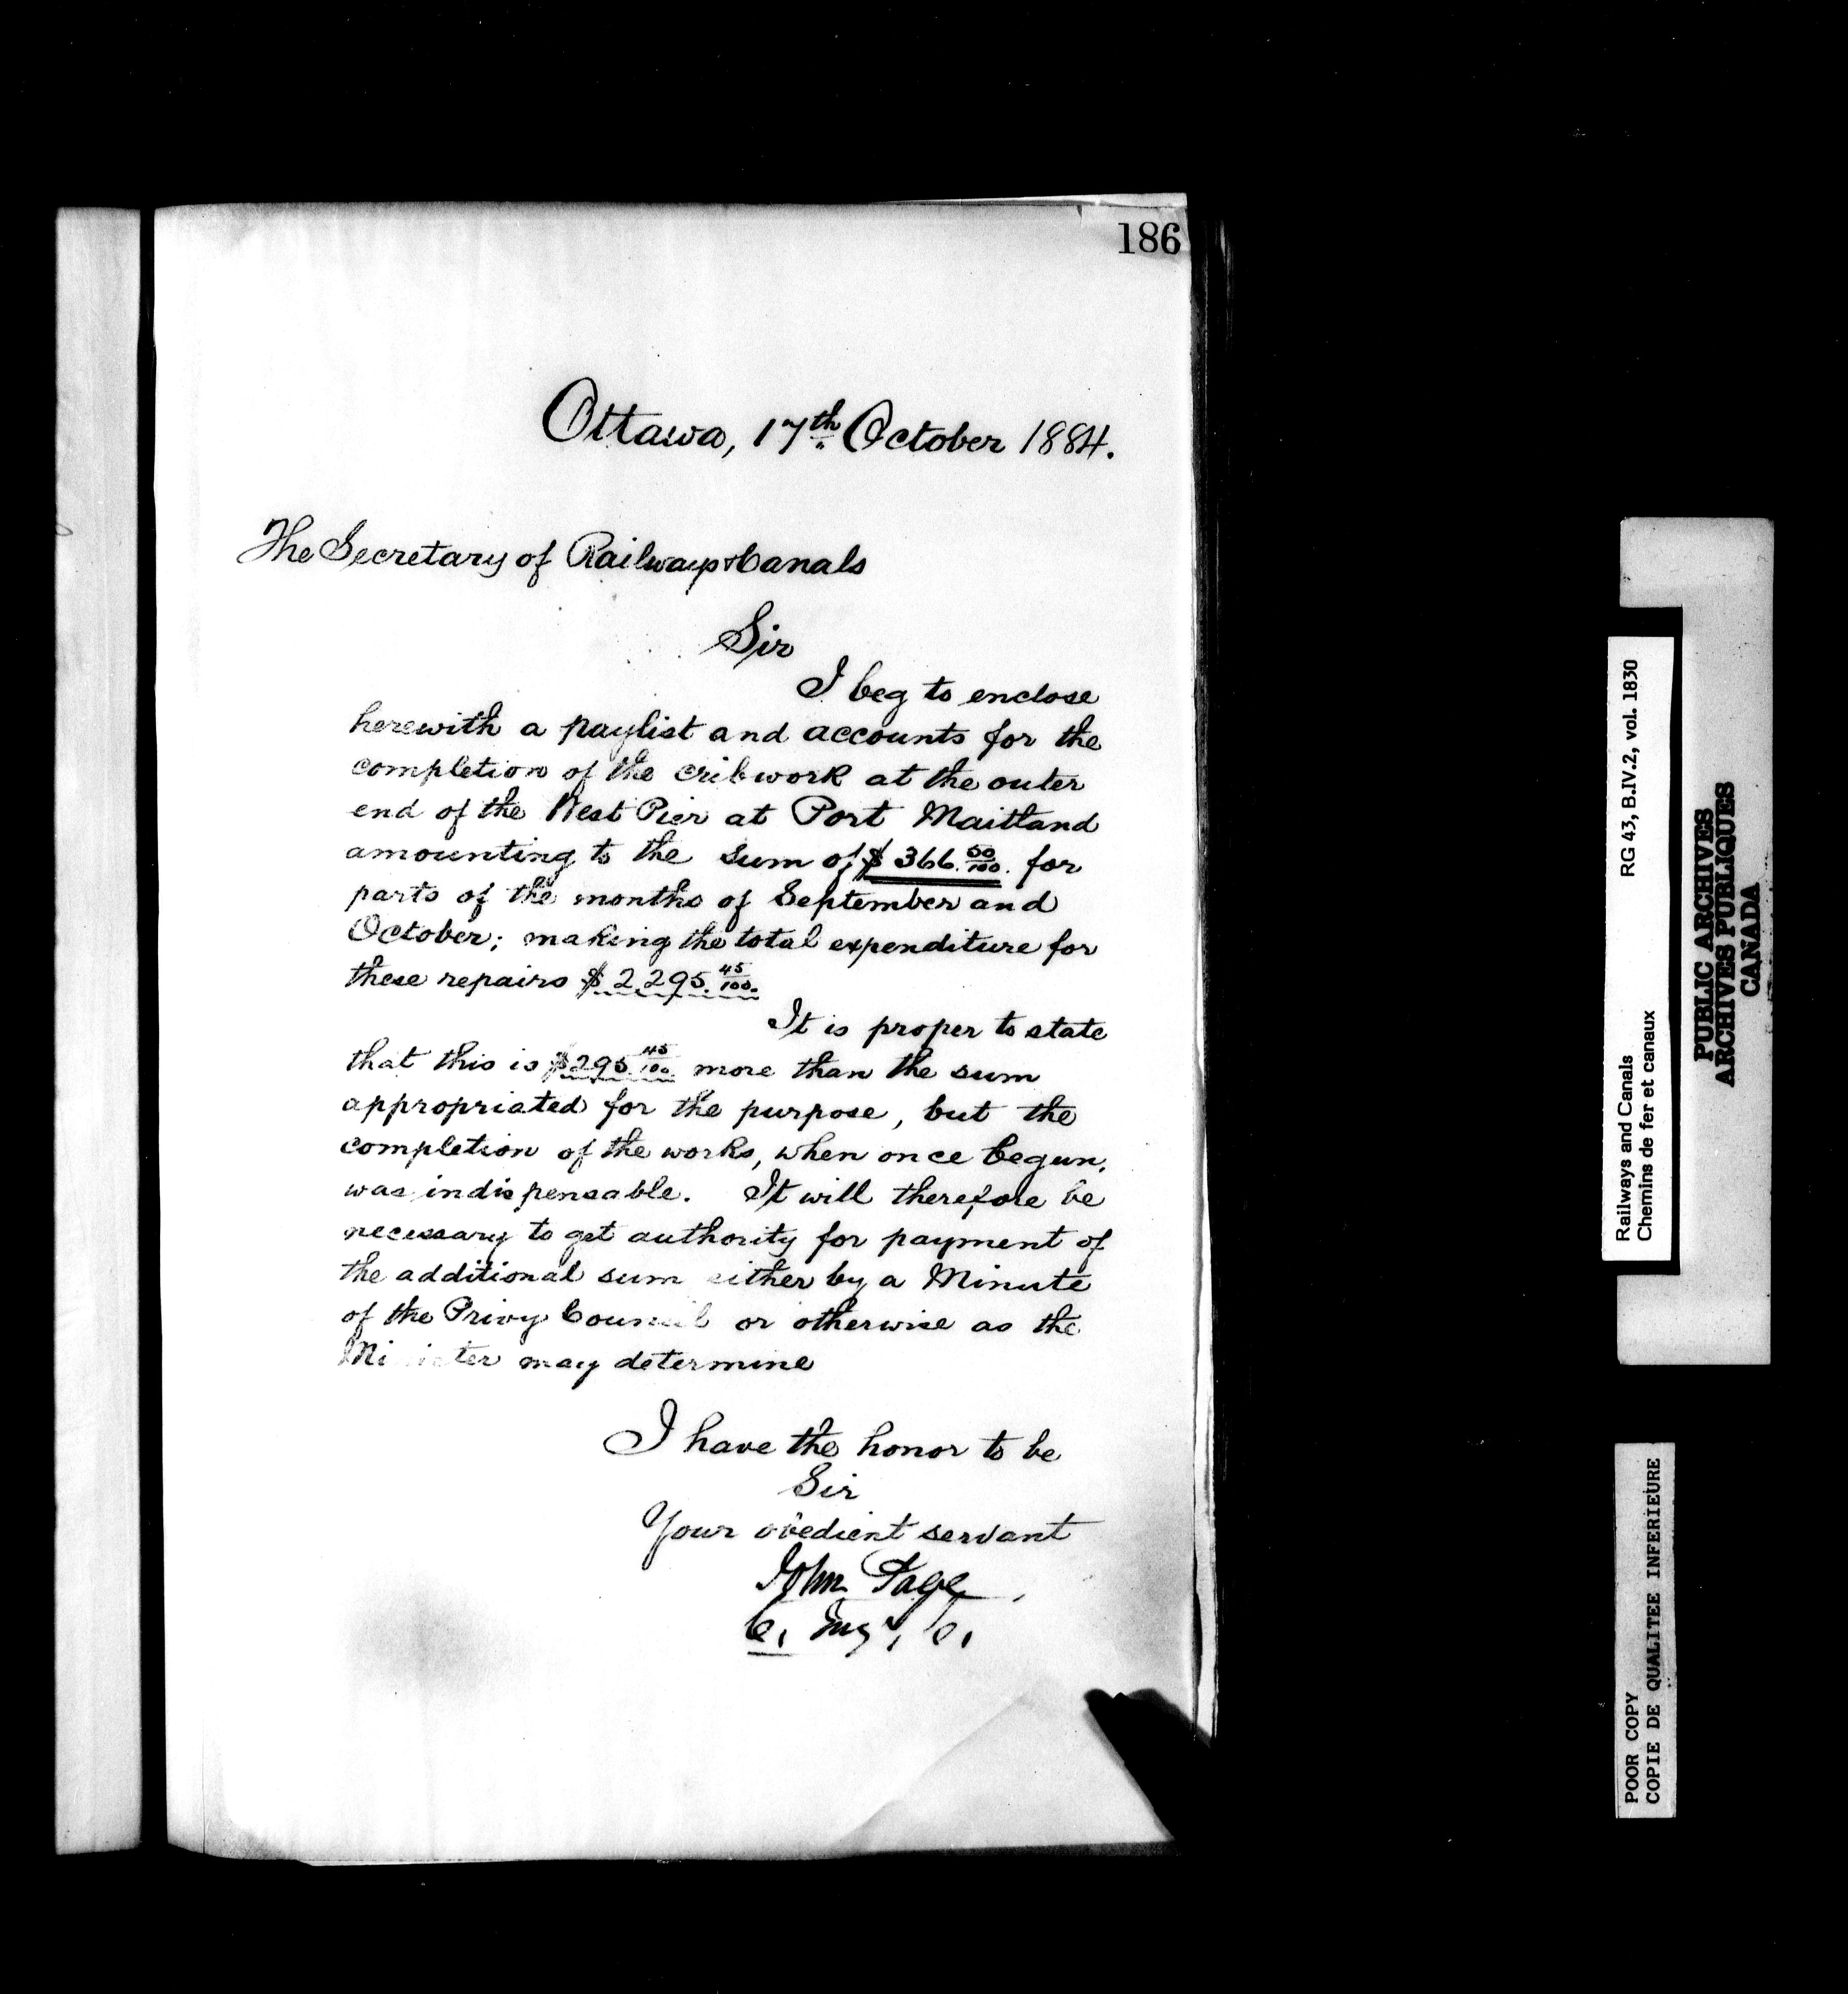 186
Ottawa, 17th October 1884.
The Secretary of Railways & Canals
Sir
I beg to enclose
herewith a paylist and accounts for the
completion of the cribwork at the outer
end of the West Pier at Port Maitland
amounting to the sum of $366.50/100. for
parts of the months of September and
October; making the total expenditure for
these repairs $2,295.45/100.
It is proper to state
that this is $295.45/100 more than the sum
appropriated for the purpose, but the
completion of the works, when once begun,
was indispensable. It will therefore be
necessary to get authority for payment of
the additional sum either by a Minute
of the Privy Council or otherwise as the
Minister may determine
I have the honor to be
Sir
Your obedient servant
John Page
C. Engr, C.
Railways and Canals RG 43, B.IV.2, vol. 1830
Chemins de fer et canaux
PUBLIC ARCHIVES
ARCHIVES PUBLIQUES
CANADA
POOR COPY
COPIE DE QUALITEE INFERIEURE